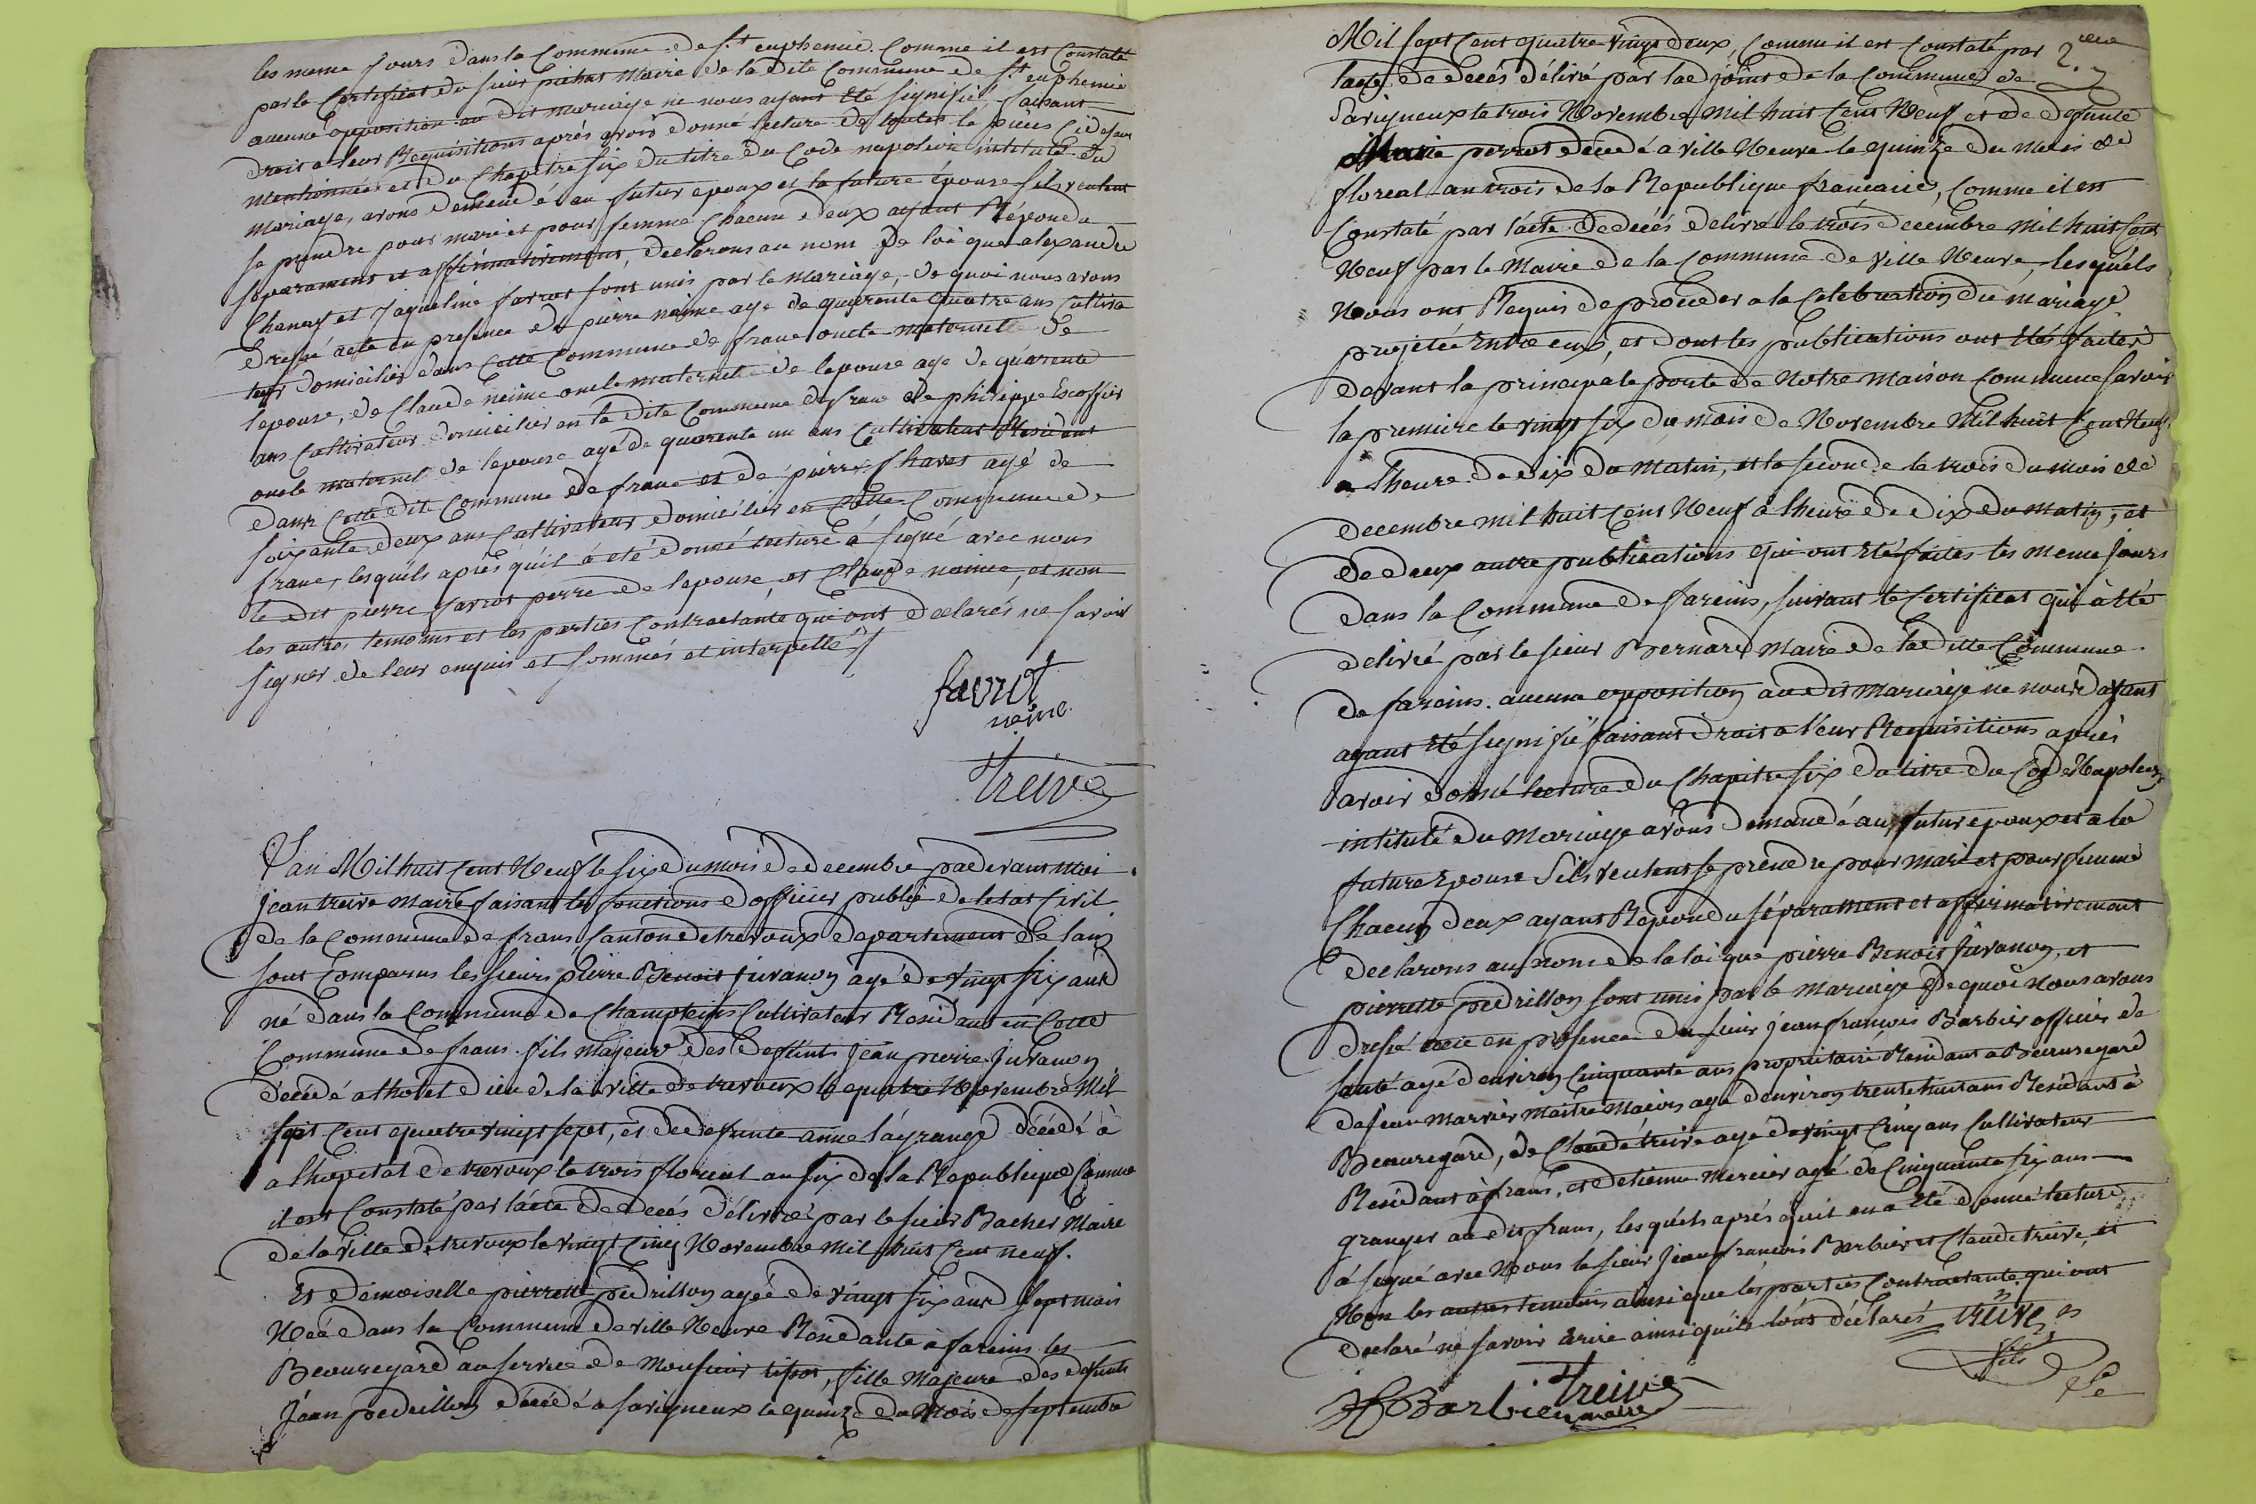 les meme Jours dans la Commune de St euphemie. Comme il est Constaté
par le Certificat du sieur Maire de la dite Commune de St euphemie
aucune opposition au dit mariage ne nous ayant été signifié, faisant
droit a leur Requisitions aprés avoir donné lecture de toutes le pièces Cidesus
mentionnée et du Chapitre six du titre du Code napoleon intitulé du
mariage, avons demandé au futur epoux et la future épouse sils veulent
se prendre pour mari et pour femme Chacun deux ayant Répondu
séparament et affirmativement, declarons au nom de loi que alexandre
et Jaqueline favrot sont unis par le mariage, de quoi nous avons
dressé acte en presence de pierre neime agé de quarente quatre ans Cultiva
teur domicilier dans Cette Commune de frans oncle maternelle de
lepouse, de Claude neime oncle maternelle de lepouse age de quarente
ans Cultivateur domicilier en la dite Commune de frans de philippe Escoffier
oncle maternel de lepouse agé de quarente un ans Cultivateur Residant
dans Cette dite Commune de frans et de pierre Charet agé de
soixante deux ans Cultivateur domicilier en Cette Commune de
frans, lesquels aprés quil á eté donné lecture á signé avec nous
le dit pierre favrot perre de lepouse, et Claude neime, et non
les autres temoins et les parties Contractante qui ont declarés ne savoir
signer de leur enquis et sommés et interpellé
favrot
neime
Treive
Lan Mil huit Cent Neuf le six du mois de decembre pardevant moi
jean treive Maire faisant les fonctions dofficier public de letat Civil
de la Commune de frans Canton de trevoux departement de lain
sont Comparus les sieurs pierre Benoit Juvanon agé de vingt six ans
né dans la Commune de Champteins Cultivateur Residant en Cette
Commune de frans. fils Majeur des defunts Jean pierre Juvanon
décédé a lhotel dieu de la ville de trevoux le quatre Novembre Mil
sept Cent quatre vingt sept, et de defunte anne lagrange décédé à
a lhopital de trevoux le trois floreal an six de la Republique Comme
il est Constaté par lácte de decés délivré par le sieur Bacher Maire
de la ville de trevoux le vingt Cinq Novembre Mil huit Cent neuf.
Et demoiselle pierrette pedrillon agéé de vingt six ans sept mois
Neé dans la Commune de ville Neuve Residante à fareins les
Beauregard au service de Monsieur, fille Majeure des defunts
Jean pedrillon décédé a savigneux le quinze du Mois de septembre
2.
Mil sept Cent quatre vingt deux, Comme il est Constaté par
lacte de decés délivré par ladjoint de la Commune de
Savigneux le trois Novembre Mil huit Cent Neuf et de defunte
Marie perrot décédé a ville Neuve le quinze du Mois de
floreal an trois de la Republique francaise, Comme il est
Constaté par lácte de decés delivré le trois decembre Mil huit Cent
Neuf par le Maire de la Commune de ville Neuve, lesquels
Nous ont Requis de procéder a la Celebration du mariage
projetée Entre eux, et dont les publications ont étés faites
devant la principale porte de Notre Maison Commune savoir
la premiere le vingt six du mois de Novembre Mil huit Cent Neuf
a lheure de dix du matin, et la seconde le trois du mois de
decembre mil huit Cent Neuf á lheure de dix du matin, et
de deux autre publications qui ont été faites les meme Jours
dans la Commune de fareins, suivant le Certificat qui à été
delivré par le sieur Bernard Maire de la ditte Commune
de fareins. aucune opposition au dit mariage ne nous ayant
ayant été signifié faisant droit a leur Requisitions aprés
avoir donné lecture du Chapitre six du titre du Code Napoleon
intitulé du Mariage avons demandé au futur epoux et a la
future Epouse Sils veulent se prendre pour mari et pour femme
Chacun deux ayant Répondu séparament et affirmativement
declarons au nom de la loi que pierre Benoit Juvanon, et
pierrette pedrillon sont unis par le mariage de quoi Nous avons
dressé acte en présence du sieur jean francois Barbier officier de
santé agé denviron Cinquante ans propriétaire Residant a Beauregard
de jean Marvier maitre Macon agé denviron trente huit ans Residant à
Beauregard, de Claude treive agé de vingt Cinq ans Cultivateur
Residant à frans, et detienne Mercier agé de Cinquante six ans
granger au dit frans, lesquels aprés quil en a été donné lecture,
á signé avec Nous le sieur Jean francois Barbier et Claude treive, et
Non les autres temoins ainsi que les parties Contractante qui ont
declaré ne savoir Ecrire ainsi quils lont déclarés
treive
fils
Barbier Treive
maire